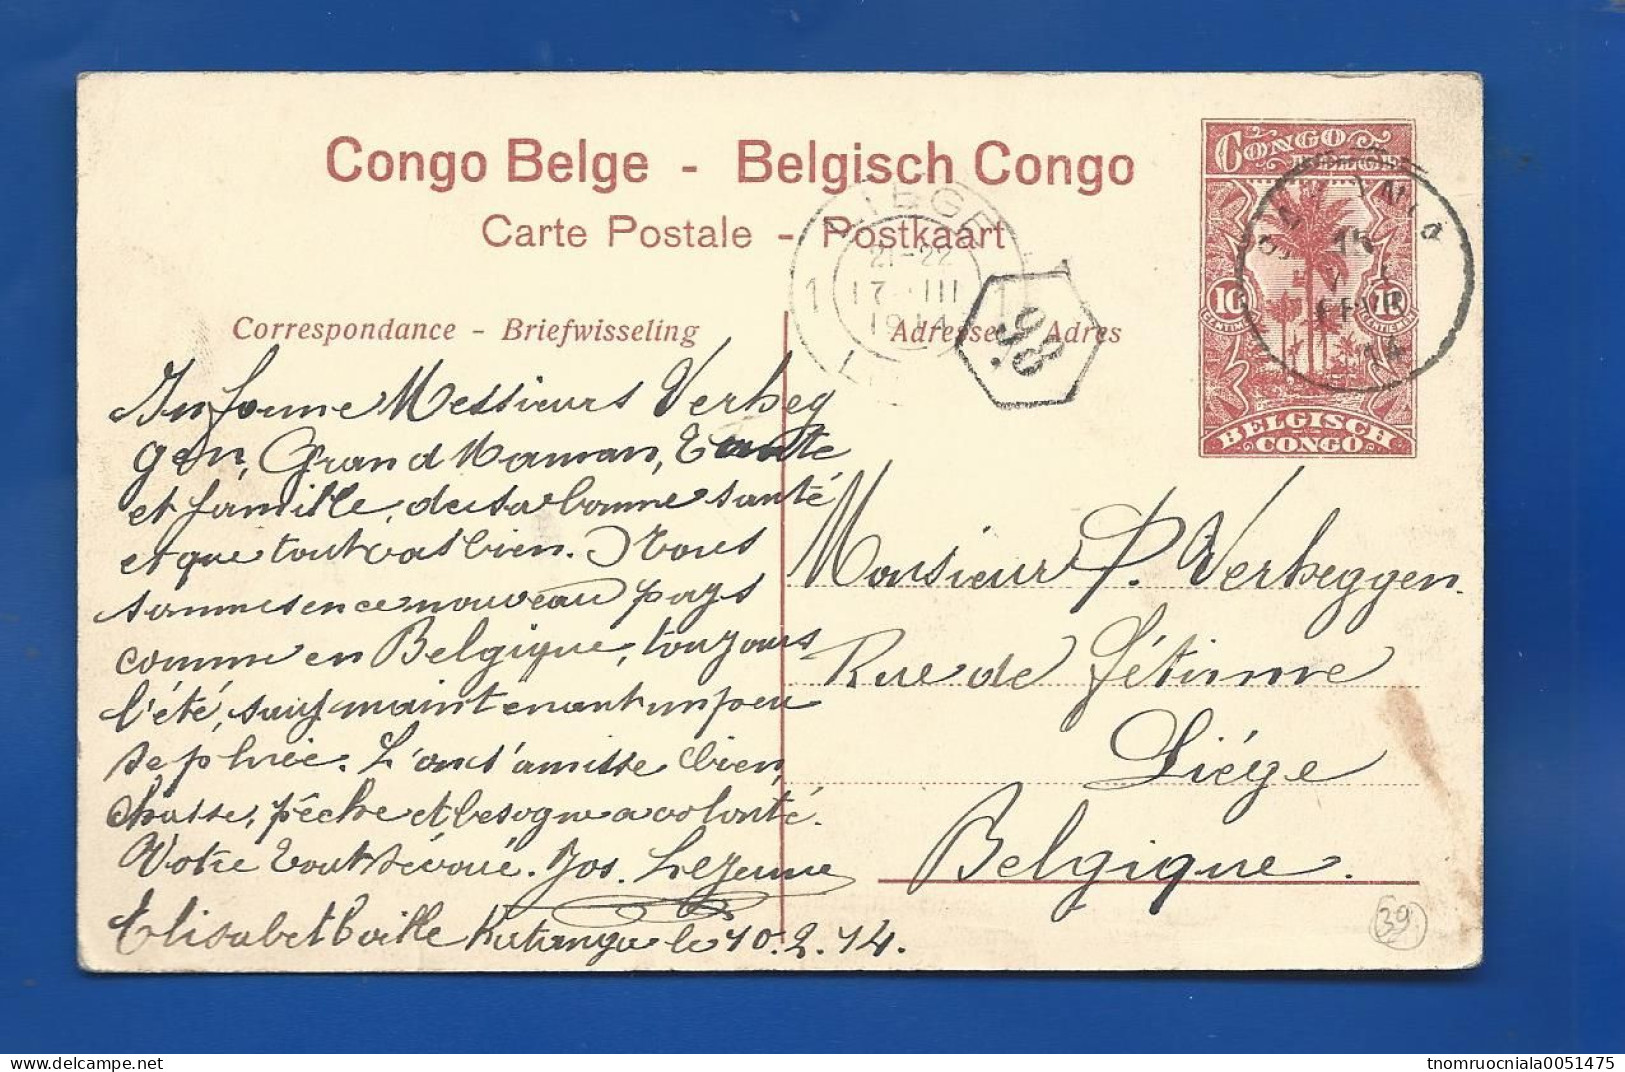 Congo Belge - Belgisch Congo
Carte Postale - Postkaart
Correspondance - Briefwisseling
Adresse - Adres
CONGO
10 CENTIMES
10 CENTIEMEN
BELGISCH
CONGO
LIÈGE
1 1
21-22
17 III
1914
98
15
FEVR
14
Informe Messieurs Verheg
gen, Grand Maman, Tante
et famille, de sa bonne santé
et que tout va bien. Nous
sommes en ce nouveau pays
comme en Belgique, toujours
l'été, sauf maintenant un peu
de pluie. L'on s'amuse bien,
chasse, pêche et besogne a volonté.
Votre tout dévoué. Jos. Lejeune
Elisabethville Katanga le 10.2.14.
Monsieur P. Verheggen.
Rue de Fétinne
Liége
Belgique.
39
Delcampe.net
tnomruocniala0051475